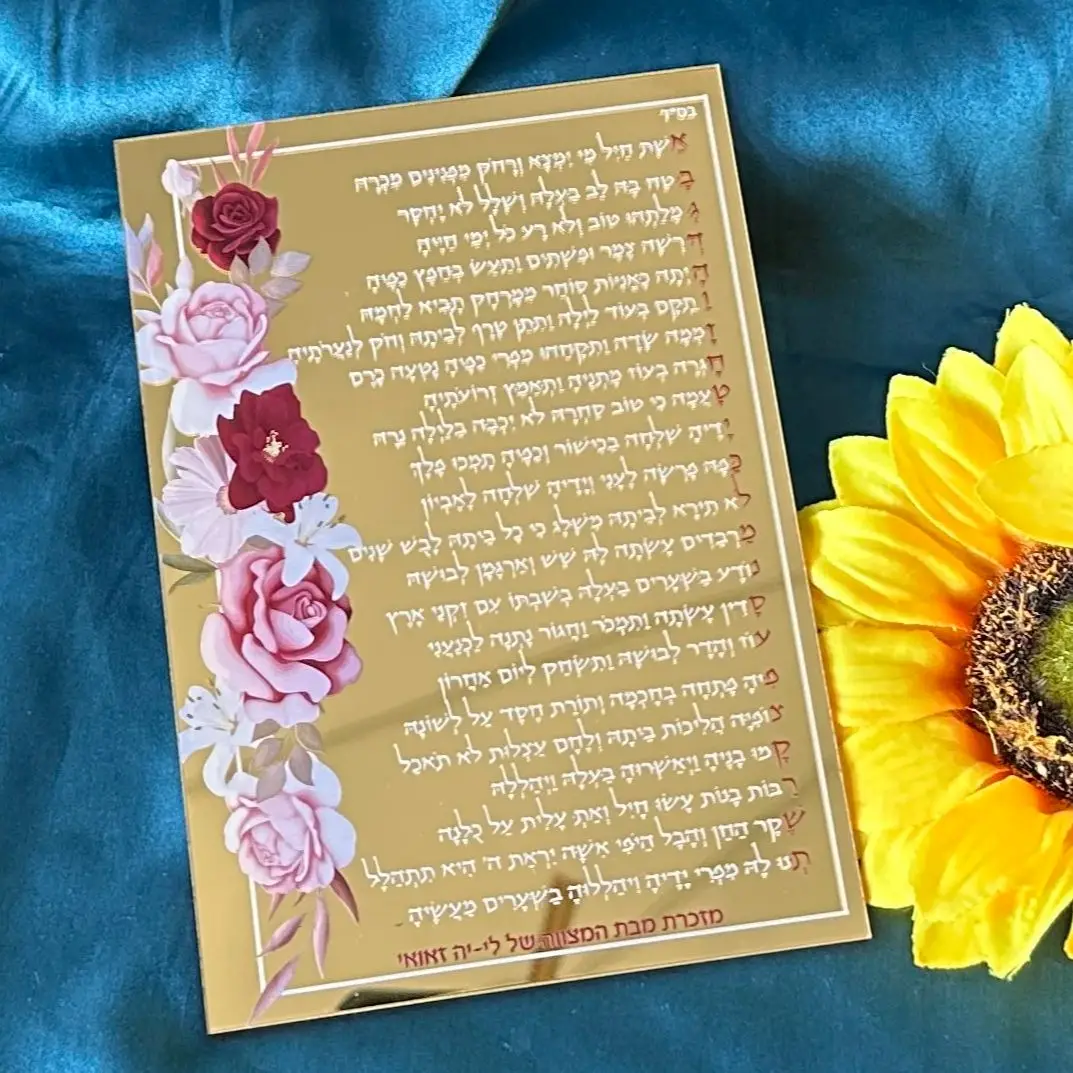 בס״ד
אֵשֶׁת חַיִל מִי יִמְצָא וְרָחֹק מִפְּנִינִים מִכְרָהּ
בָּטַח בָּהּ לֵב בַּעְלָהּ וְשָׁלָל לֹא יֶחְסָר
גְּמָלַתְהוּ טוֹב וְלֹא רָע כֹּל יְמֵי חַיֶּיהָ
דָּרְשָׁה צֶמֶר וּפִשְׁתִּים וַתַּעַשׂ בְּחֵפֶץ כַּפֶּיהָ
הָיְתָה כָּאֳנִיּוֹת סוֹחֵר מִמֶּרְחָק תָּבִיא לַחְמָהּ
וַתָּקָם בְּעוֹד לַיְלָה וַתִּתֵּן טֶרֶף לְבֵיתָהּ וְחֹק לְנַעֲרֹתֶיהָ
זָמְמָה שָׂדֶה וַתִּקָּחֵהוּ מִפְּרִי כַפֶּיהָ נָטְעָה כָּרֶם
חָגְרָה בְעוֹז מָתְנֶיהָ וַתְּאַמֵּץ זְרוֹעֹתֶיהָ
טָעֲמָה כִּי טוֹב סַחְרָהּ לֹא יִכְבֶּה בַּלַּיְלָה נֵרָהּ
יָדֶיהָ שִׁלְּחָה בַכִּישׁוֹר וְכַפֶּיהָ תָּמְכוּ פָלֶךְ
כַּפָּהּ פָּרְשָׂה לֶעָנִי וְיָדֶיהָ שִׁלְּחָה לָאֶבְיוֹן
לֹא תִירָא לְבֵיתָהּ מִשָּׁלֶג כִּי כָל בֵּיתָהּ לָבֻשׁ שָׁנִים
מַרְבַדִּים עָשְׂתָה לָּהּ שֵׁשׁ וְאַרְגָּמָן לְבוּשָׁהּ
נוֹדָע בַּשְּׁעָרִים בַּעְלָהּ בְּשִׁבְתּוֹ עִם זִקְנֵי אָרֶץ
סָדִין עָשְׂתָה וַתִּמְכֹּר וַחֲגוֹר נָתְנָה לַכְּנַעֲנִי
עוֹז וְהָדָר לְבוּשָׁהּ וַתִּשְׂחַק לְיוֹם אַחֲרוֹן
פִּיהָ פָּתְחָה בְחָכְמָה וְתוֹרַת חֶסֶד עַל לְשׁוֹנָהּ
צוֹפִיָּה הֲלִיכוֹת בֵּיתָהּ וְלֶחֶם עַצְלוּת לֹא תֹאכֵל
קָמוּ בָנֶיהָ וַיְאַשְּׁרוּהָ בַּעְלָהּ וַיְהַלְלָהּ
רַבּוֹת בָּנוֹת עָשׂוּ חָיִל וְאַתְּ עָלִית עַל כֻּלָּנָה
שֶׁקֶר הַחֵן וְהֶבֶל הַיֹּפִי אִשָּׁה יִרְאַת ה' הִיא תִתְהַלָּל
תְּנוּ לָהּ מִפְּרִי יָדֶיהָ וִיהַלְלוּהָ בַשְּׁעָרִים מַעֲשֶׂיהָ
מזכרת מבת המצווה של לי-יה זאואי